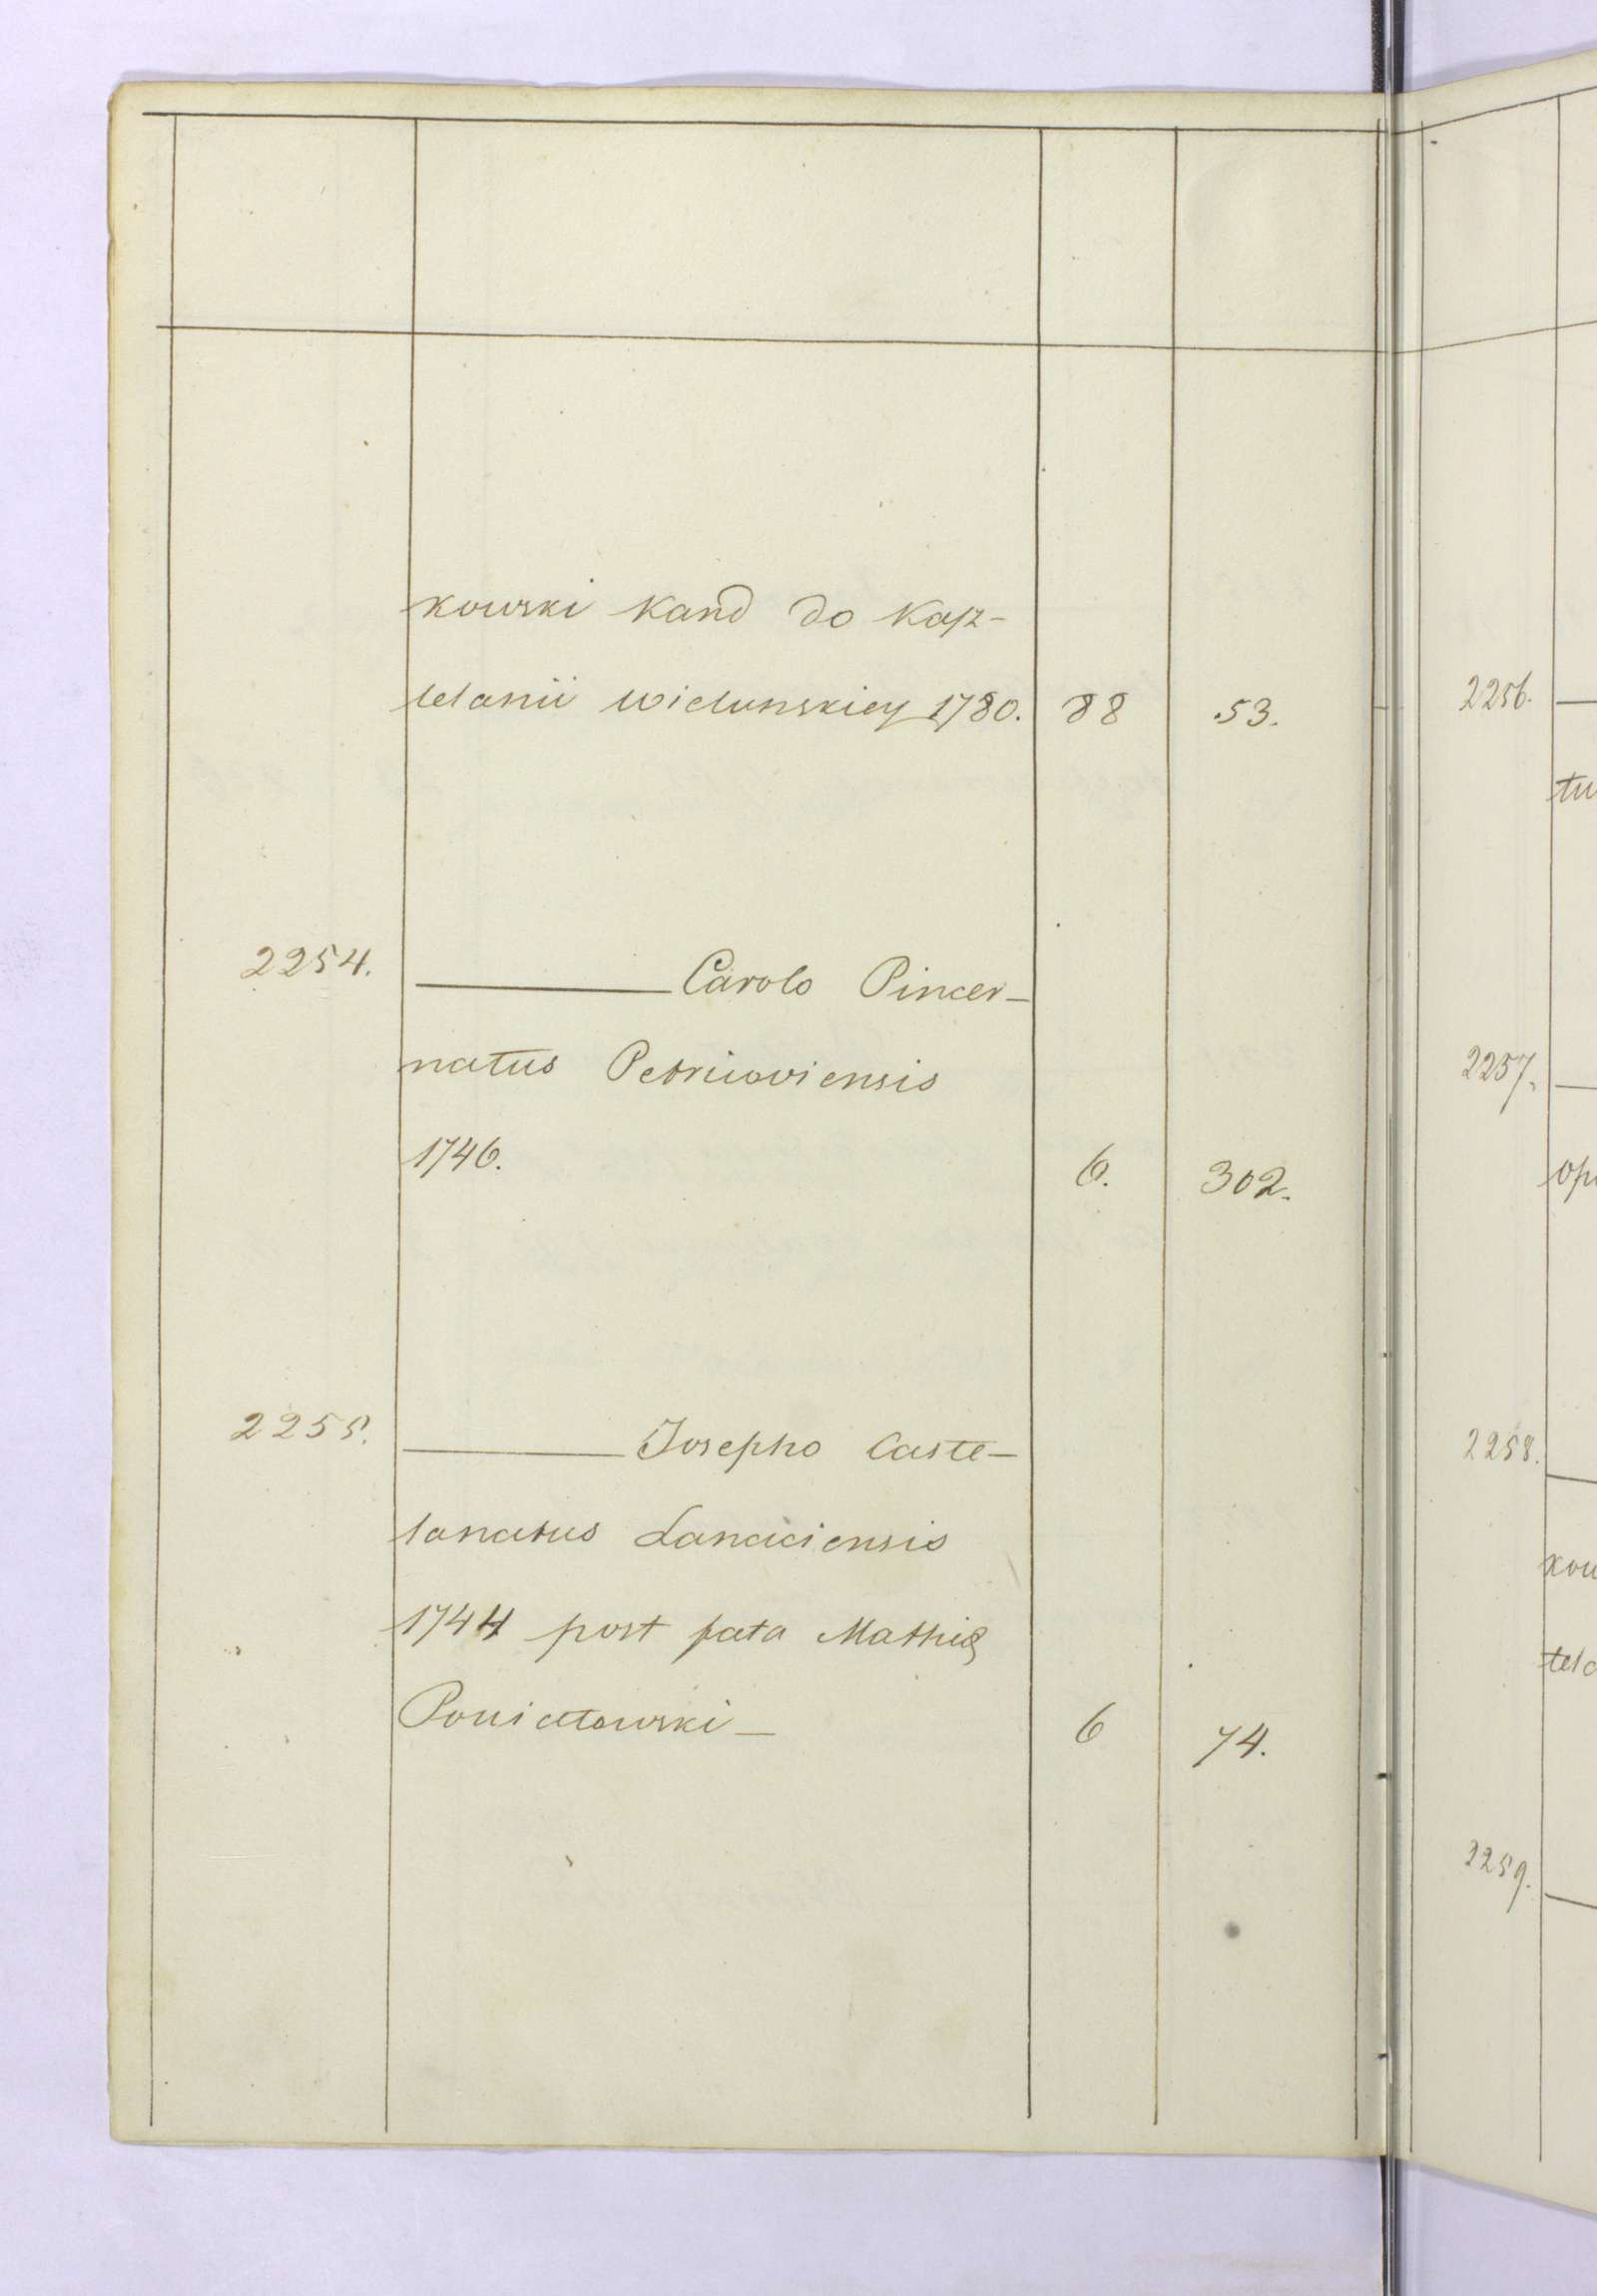 kowski kand do Kasz-
telanii Wielunskiey 1780. 88 53.
2254. ——— Carolo Pincer-
natus Petricoviensis
1746. 6. 302.
2255. ——— Josepho Caste-
lanatus Lanciciensis
1744 post fata Mathiæ
Poniatowski — 6 74.
2256.
tu
2257.
op
2258.
kow
tela
2259.